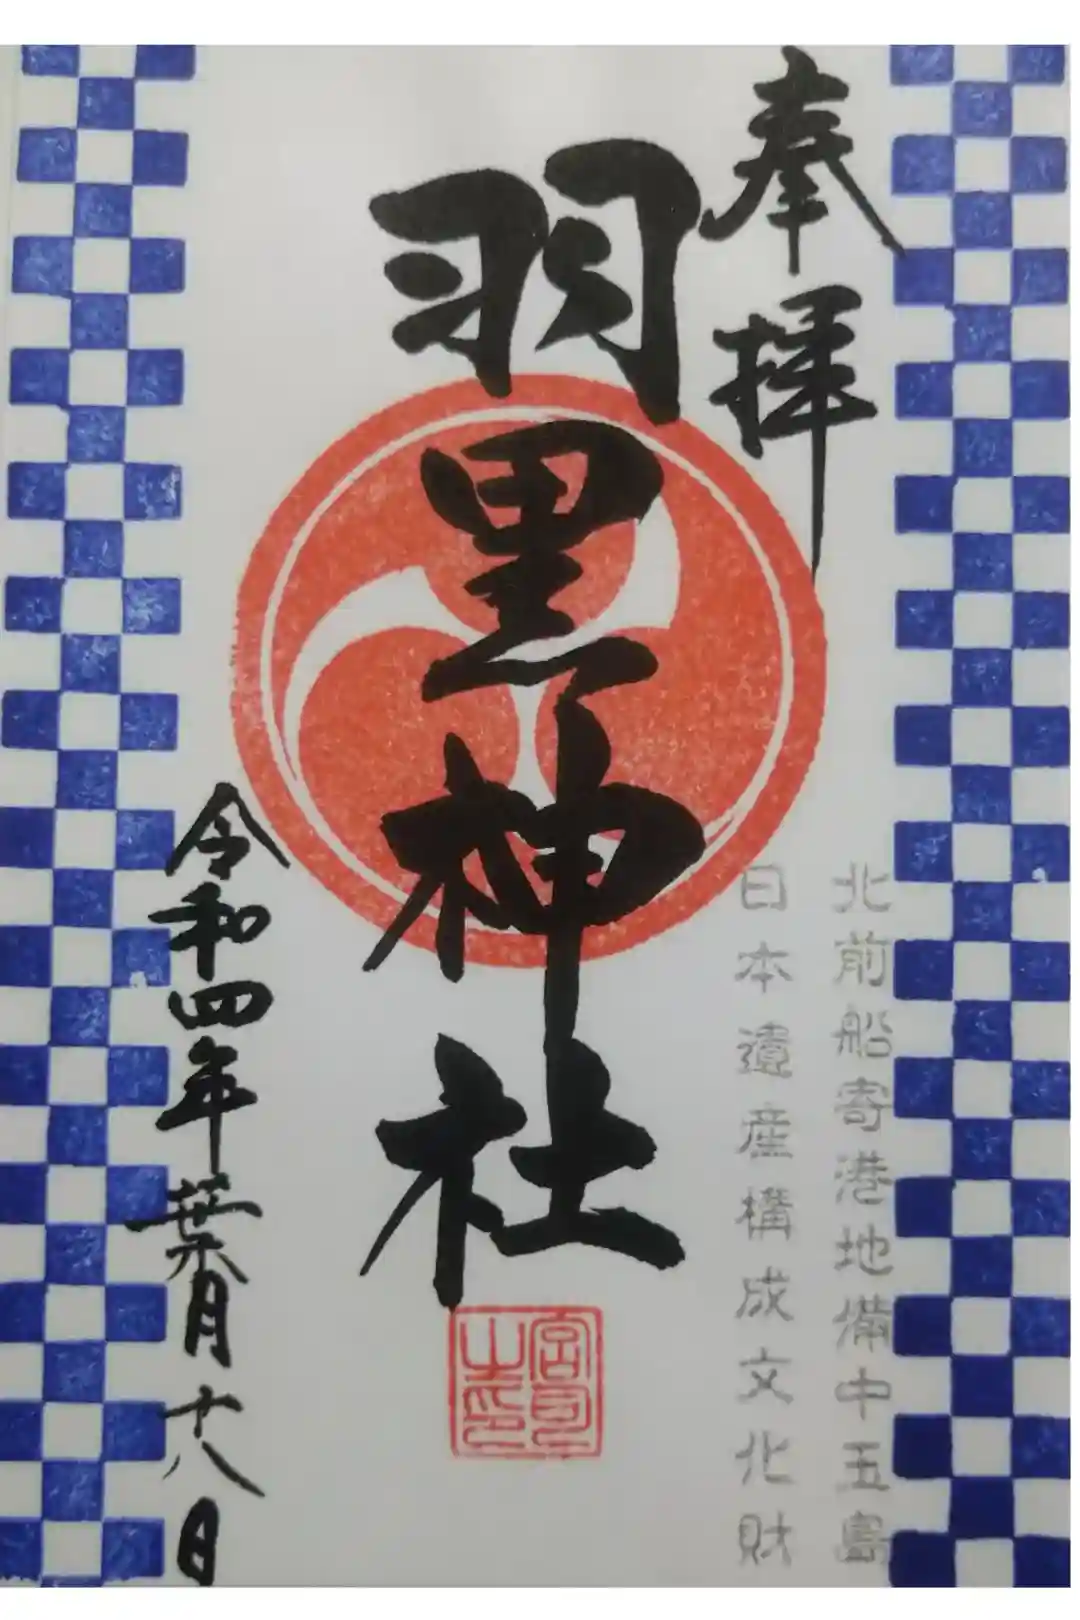 奉拝
北前船寄港地備中玉島
日本遺産構成文化財
羽黒神社
宮司之印
令和四年葉月十八日